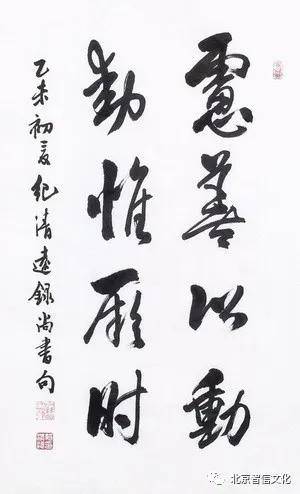 慮善以動
動惟厥时
乙未初夏紀清遠録尚書句
北京智信文化